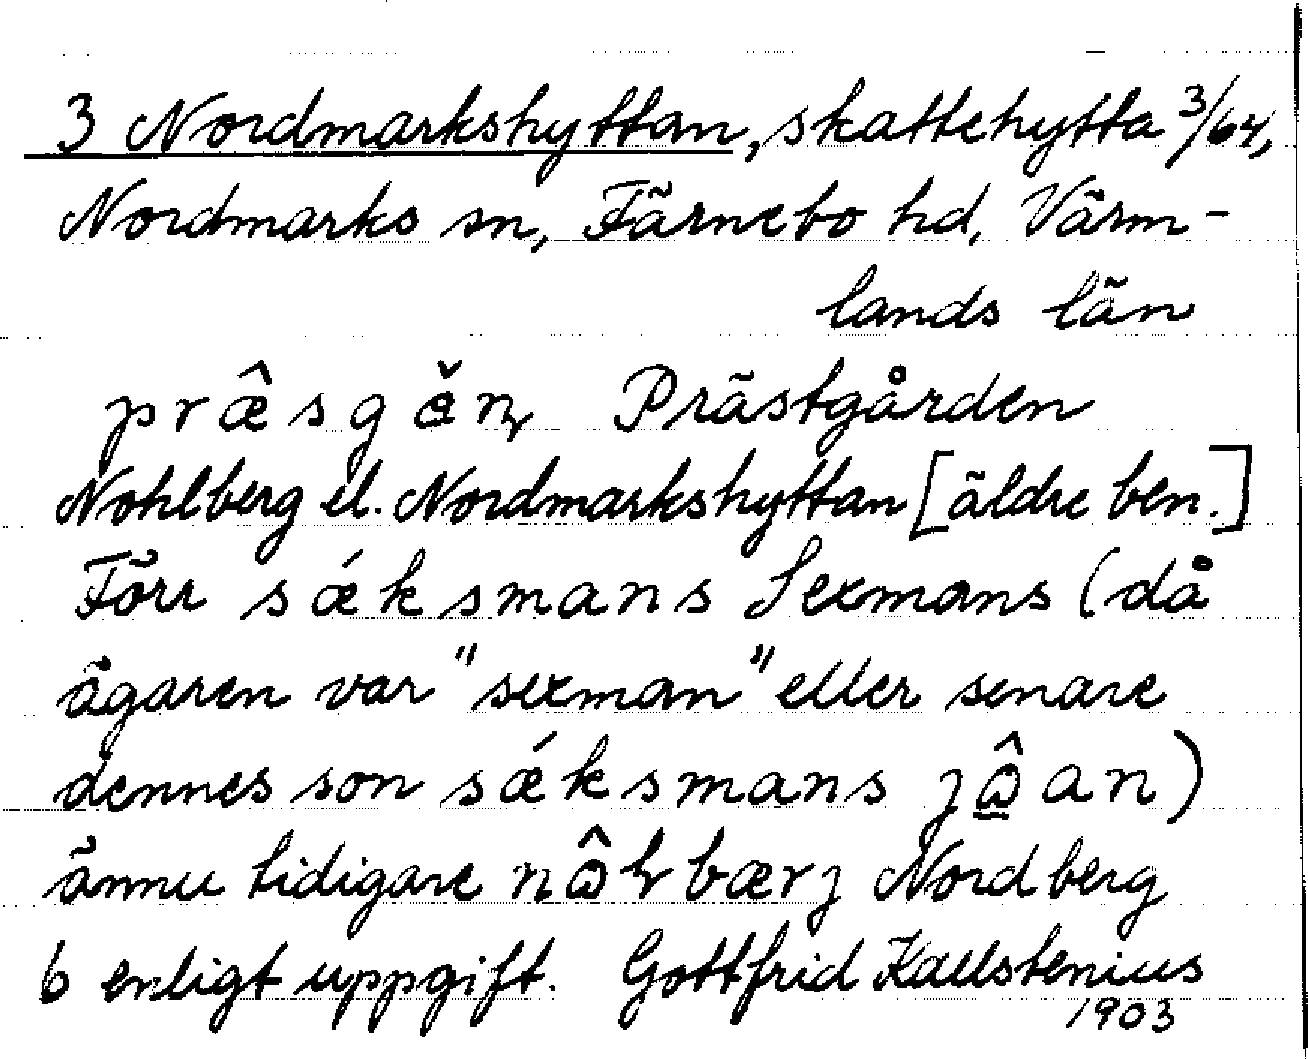 3 Nordmarkshyttan, skattehytta 3/64,
Nordmarks sn, Färnebo hd, Värm-
lands län
præ̂sgǎɳ Prästgården
Nohlberg el. Nordmarkshyttan [äldre ben.]
Förr sǽksmans Sexmans (då
ägaren var "sexman" eller senare
dennes son sǽksmans jω̲̂an)
ännu tidigare nω̂ɫbærj Nordberg
6 enligt uppgift. Gottfrid Kallstenius
1903